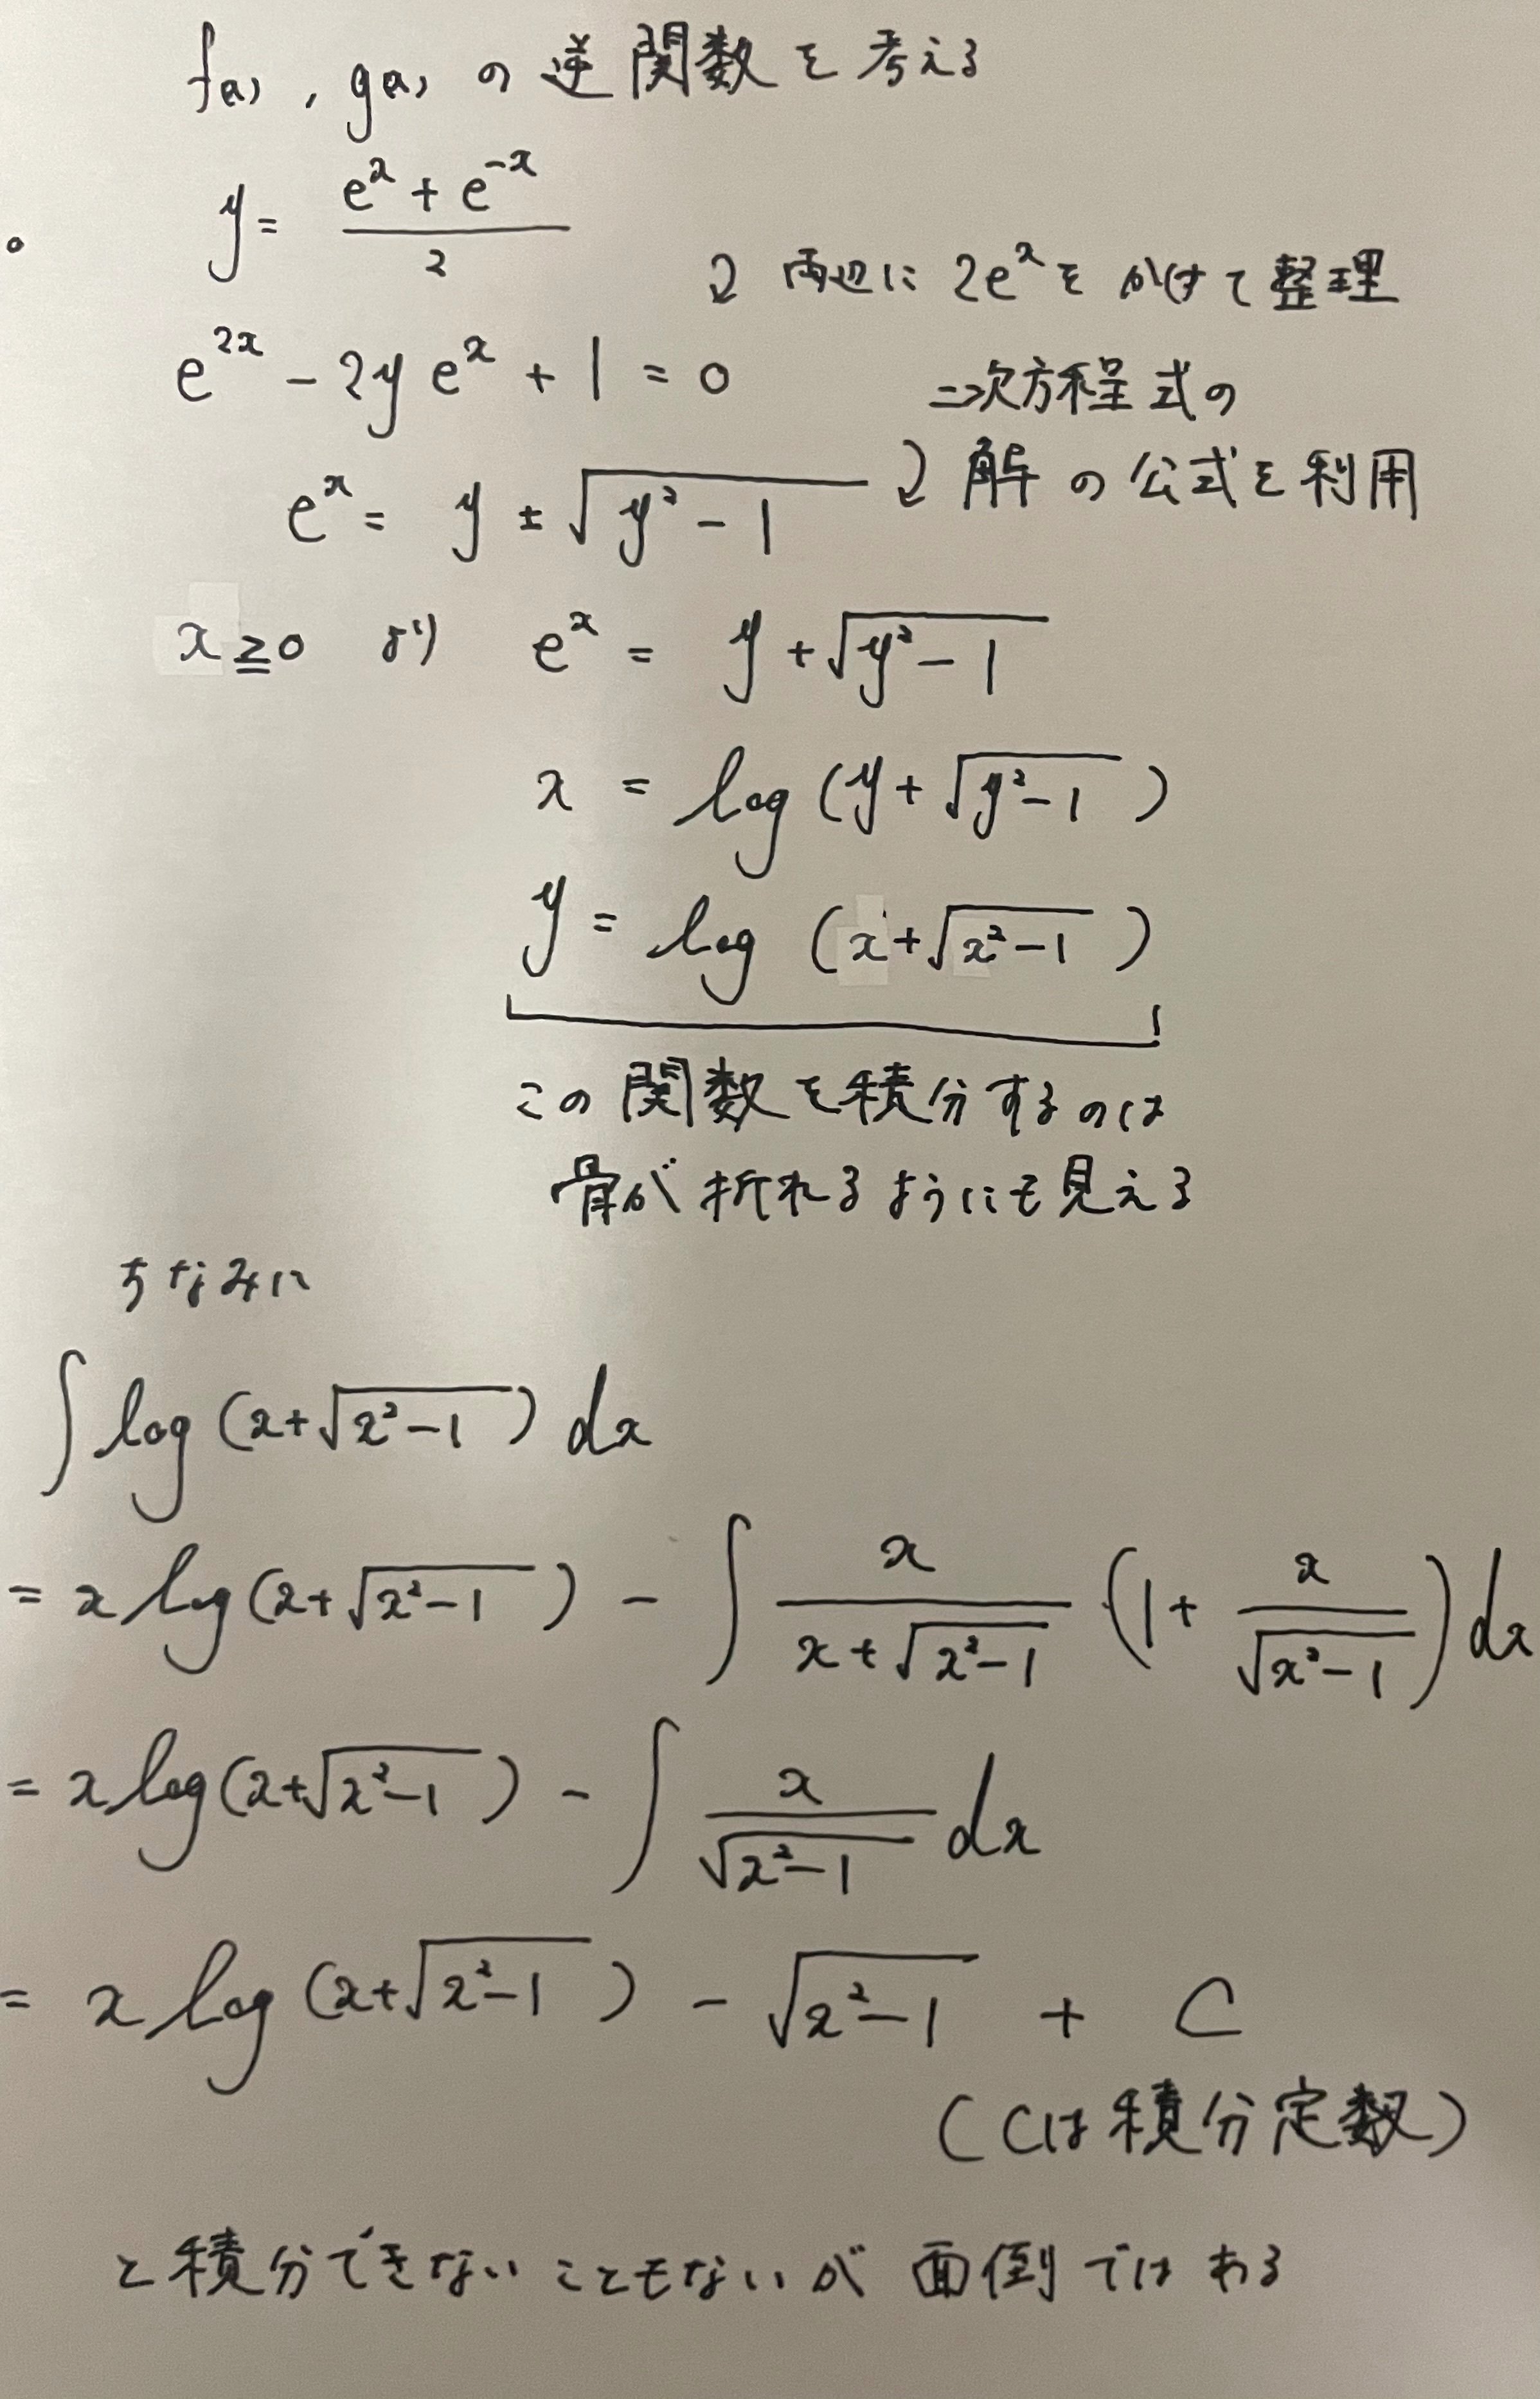 f(x) , g(x) の逆関数を考える
y = (e^x + e^{-x})/2
両辺に 2e^xをかけて整理
e^{2x} - 2y e^x + 1 = 0
二次方程式の
解の公式を利用
e^x = y ± √(y² - 1)
x ≧ 0 より e^x = y + √(y² - 1)
x = log (y + √(y² - 1))
y = log (x + √(x² - 1))
この関数を積分するのは
骨が折れるようにも見える
ちなみに
∫ log (x + √(x² - 1)) dx
= x log (x + √(x² - 1)) - ∫ x/(x + √(x² - 1)) (1 + x/√(x² - 1)) dx
= x log (x + √(x² - 1)) - ∫ x/√(x² - 1) dx
= x log (x + √(x² - 1)) - √(x² - 1) + C
(Cは積分定数)
と積分できないこともないが面倒ではある